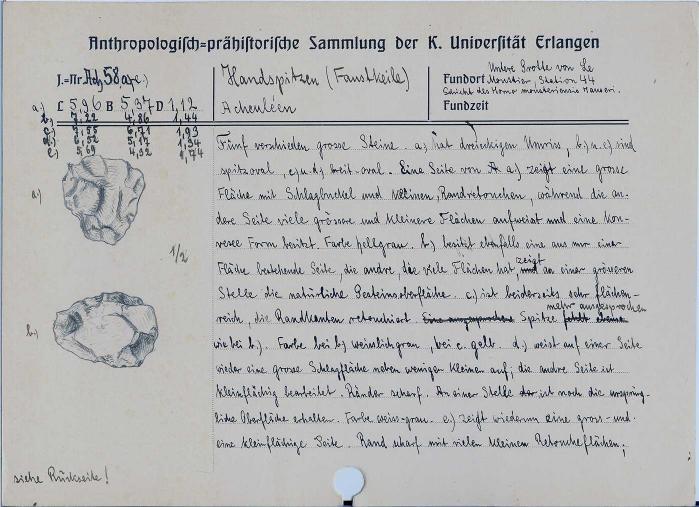 Anthropologisch=prähistorische Sammlung der K. Universität Erlangen
J.=Nr. Ach 58 a, (-e.)
Handspitzen (Faustkeile)
Acheuléen
Fundort Untere Grotte von Le
Moustier, Station 44
Schicht des Homo mousteriensis Hauseri.
Fundzeit
a.) L 5,96 B 5,37 D 1,12
b.) 7,22 4,86 1,44
c.) 7,55 6,71 1,93
d.) 6,52 5,17 1,34
e.) 5,69 4,92 1,74
a.)
1/2
b.)
Fünf verschieden grosse Steine. a.) hat dreieckigen Umriss, b.) u. e.) sind
spitzoval, c.) u. d.) breit-oval. Eine Seite von a.) zeigt eine grosse
Fläche mit Schlagbuckel und kleinen Randretouchen, während die an-
dere Seite viele grössere und kleinere Flächen aufweist und eine kon-
vexe Form besitzt. Farbe hellgrau. b.) besitzt ebenfalls eine aus nur einer
Fläche bestehende Seite, die andre, die viele Flächen hat zeigt an einer grösseren
Stelle die natürliche Gesteinsoberfläche. c.) ist beiderseits sehr flächen-
reich, die Randkanten retouchiert. Eine ausgesprochene Spitze mehr ausgesprochen
wie bei b.). Farbe bei b.) weisslichgrau, bei c. gelb. d.) weist auf einer Seite
wieder eine grosse Schlagfläche neben wenigen kleinen auf; die andre Seite ist
kleinflächig bearbeitet. Ränder scharf. An einer Stelle ist noch die ursprüng-
liche Oberfläche erhalten. Farbe weiss-grau. e.) zeigt wiederum eine gross- und
eine kleinflächige Seite. Rand scharf mit vielen kleinen Retoucheflächen;
siehe Rückseite!